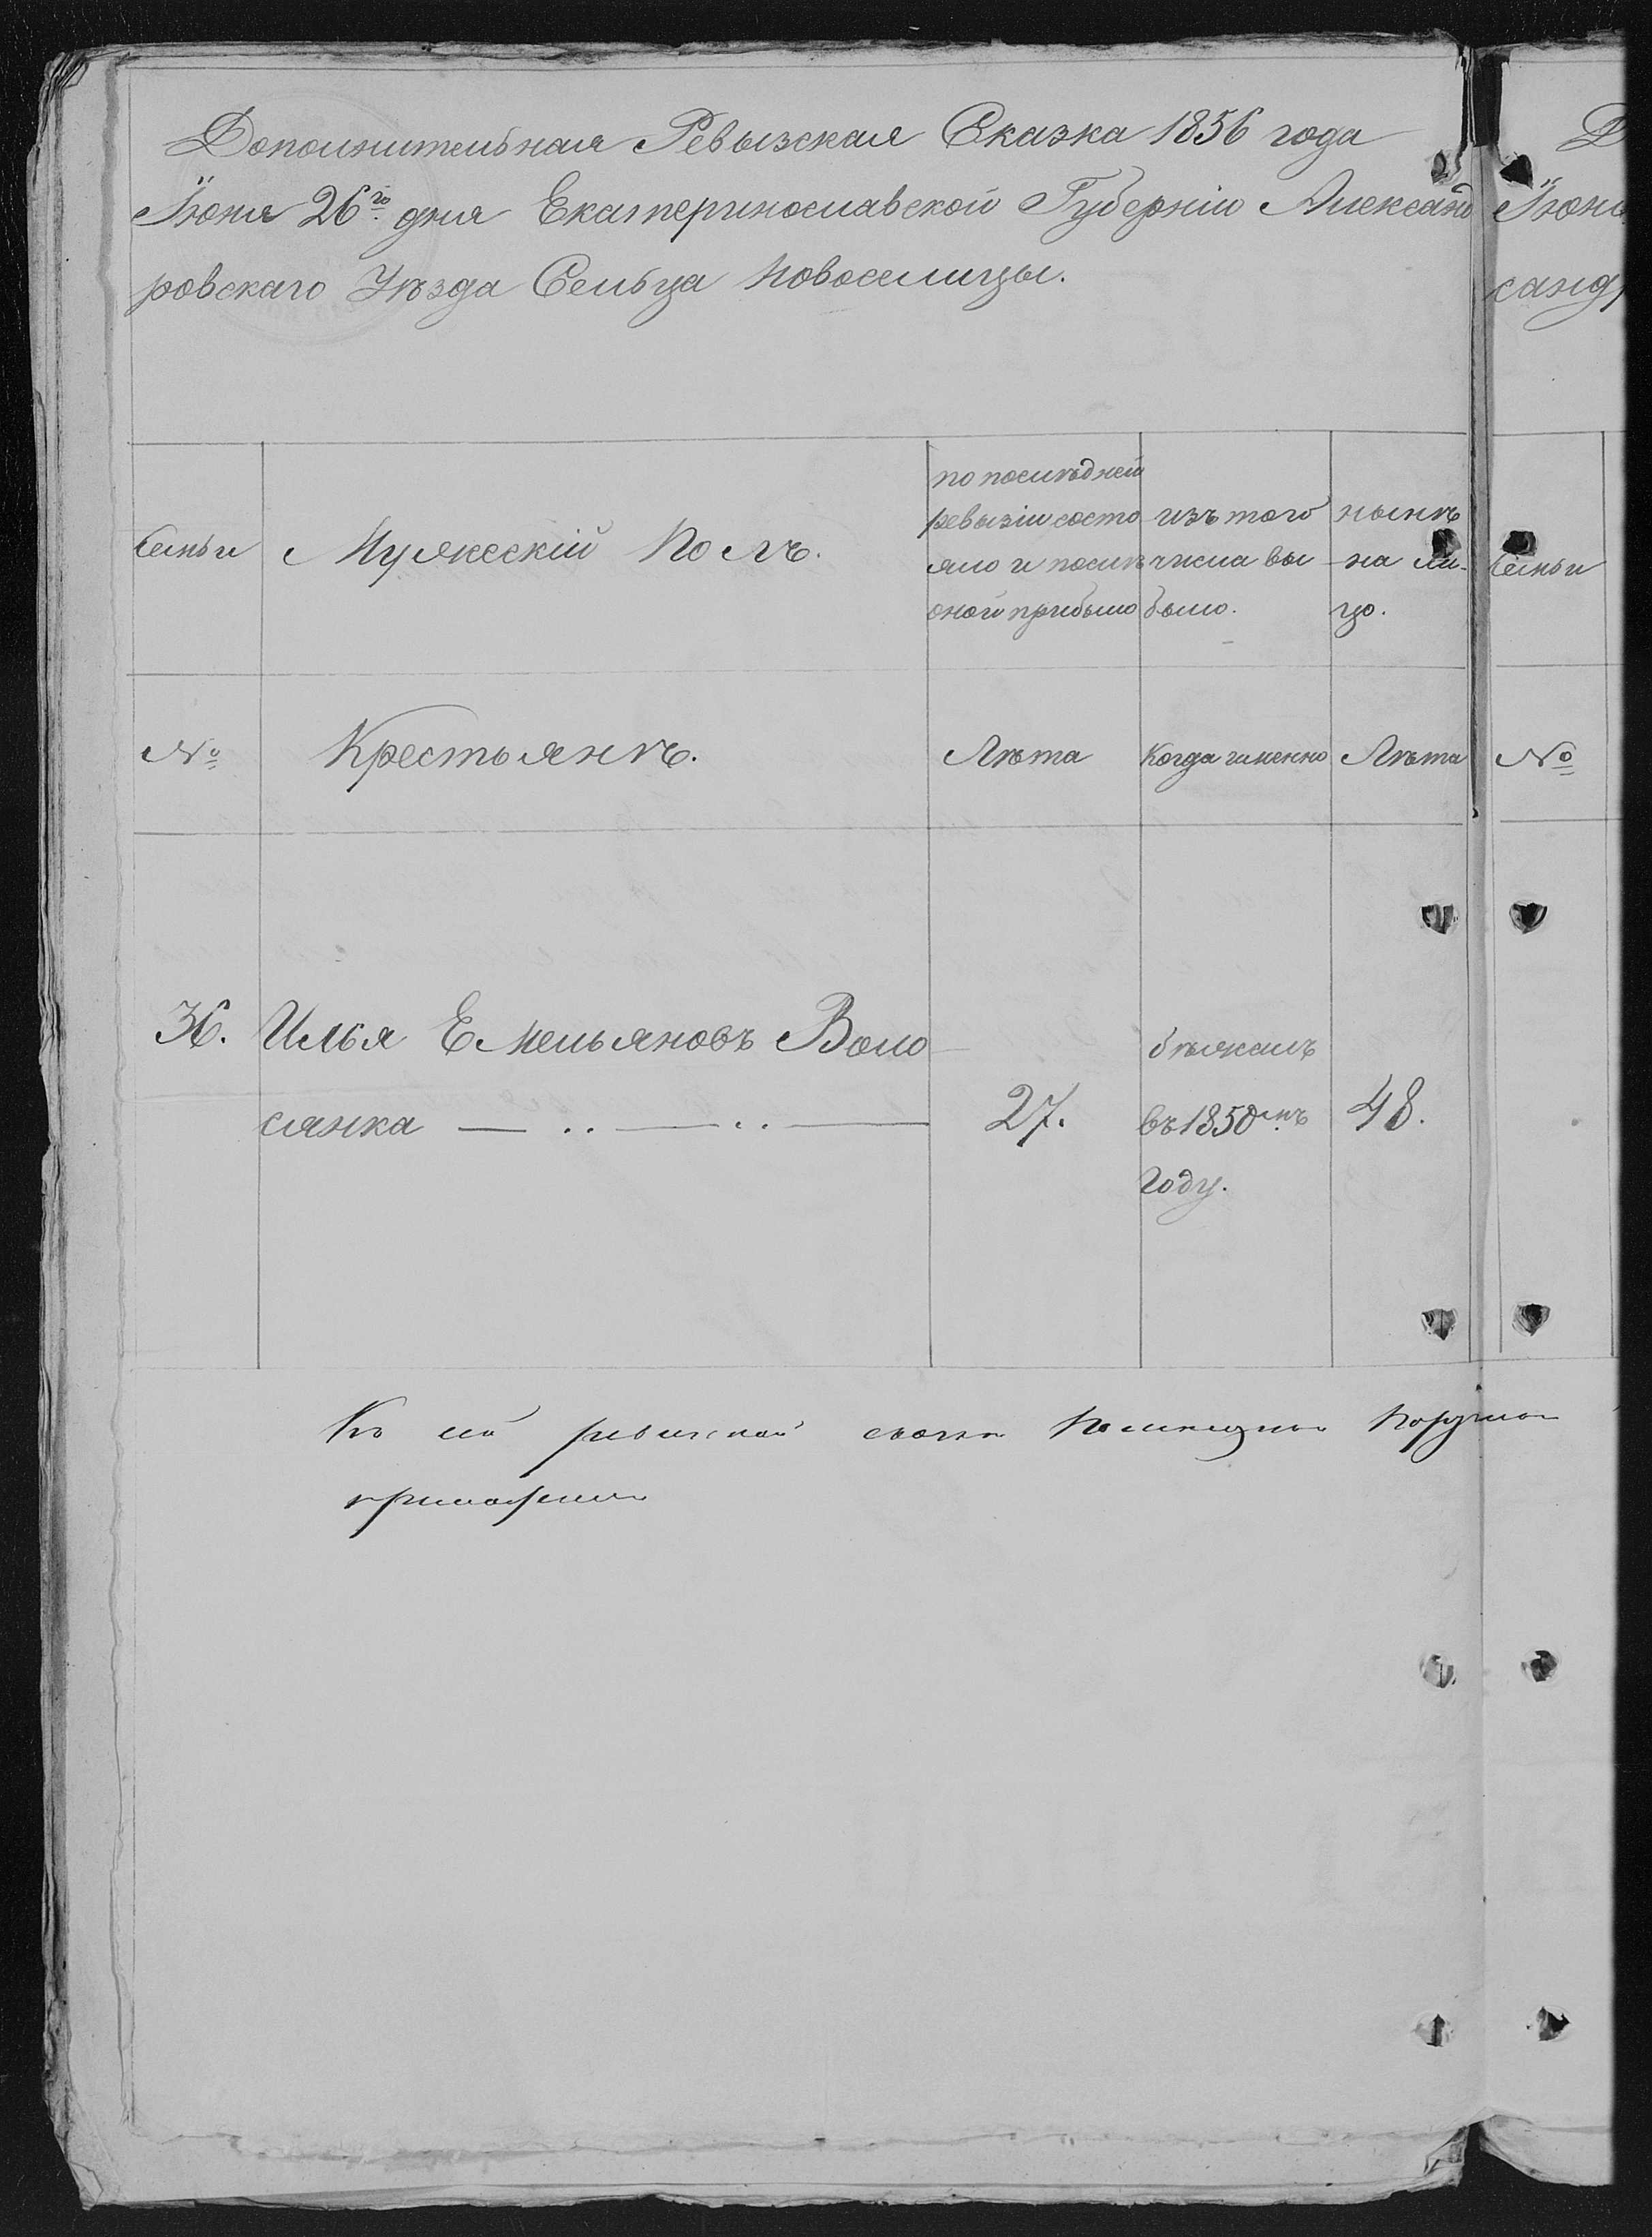 Дополнительная Ревызская Сказка 1856 года
Іюня 26го дня Екатеринославской Губерніи Александ
ровскаго Уѣзда Сельца Новоселицы.
Семьи
Мужескій Полъ.
по послѣдней
ревызіи состо
яло и послѣ
оной прибыло
изъ того
числа вы
было.
нынѣ
на ли-
цо.
№
Крестьянѣ.
Лѣта
Когда именно
Лѣта
36.
Илья Емельяновъ Воло
сянка
27.
бѣжалъ
въ 1850мъ
году.
48.
Къ сей ревизской сказки
Д
Іюня
санд
Семьи
№